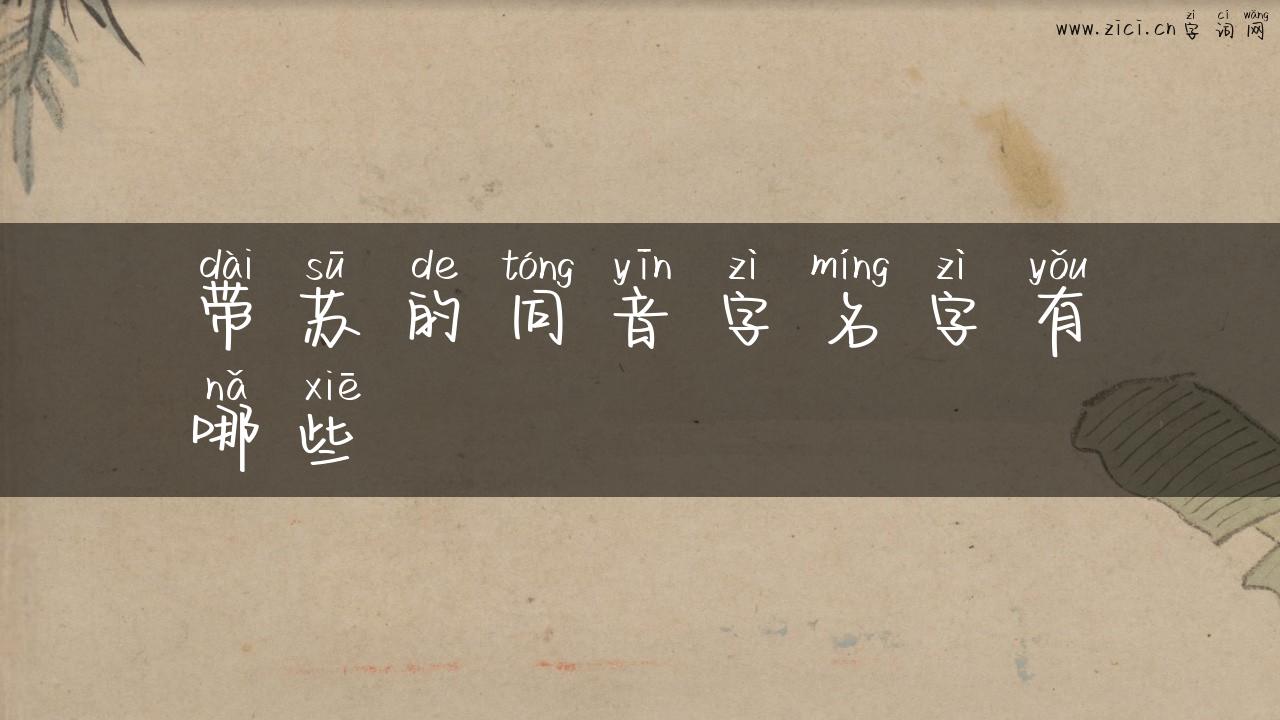 zì cí wǎng
www.zici.cn 字词网
dài sū de tóng yīn zì míng zì yǒu
带苏的同音字名字有
nǎ xiē
哪些